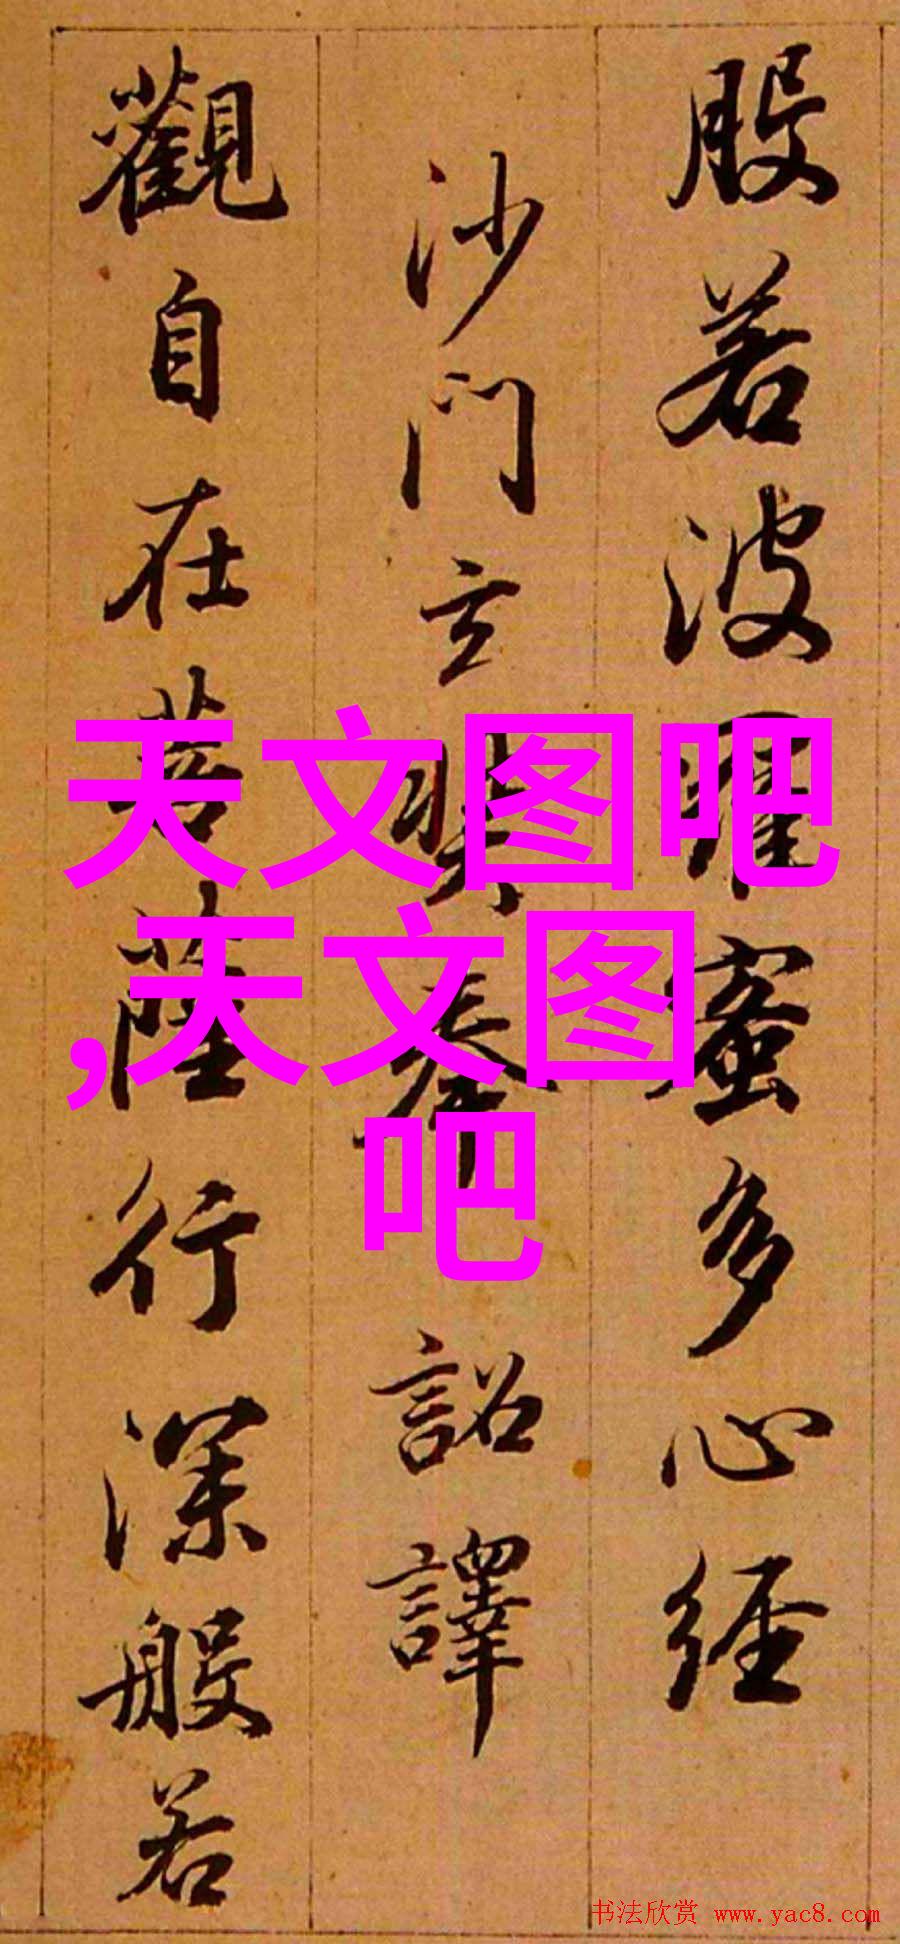 般若波羅蜜多心経
沙門玄奘奉詔譯
觀自在菩薩行深般若
天文图吧
,天文图
吧
书法欣赏 www.yac8.com